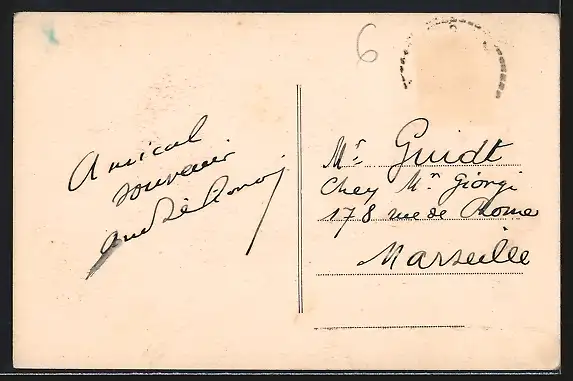 6
Amical
souvenir.
André
Mr. Guidt
Chez Mr. Giorgi
178 rue de Rome
Marseille